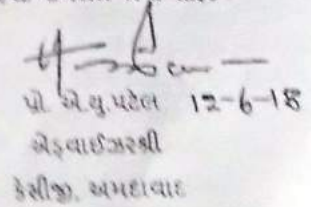 પ્રો. એ.યુ.પટેલ 12-6-18
એડવાઈઝરશ્રી
કેસીજી, અમદાવાદ